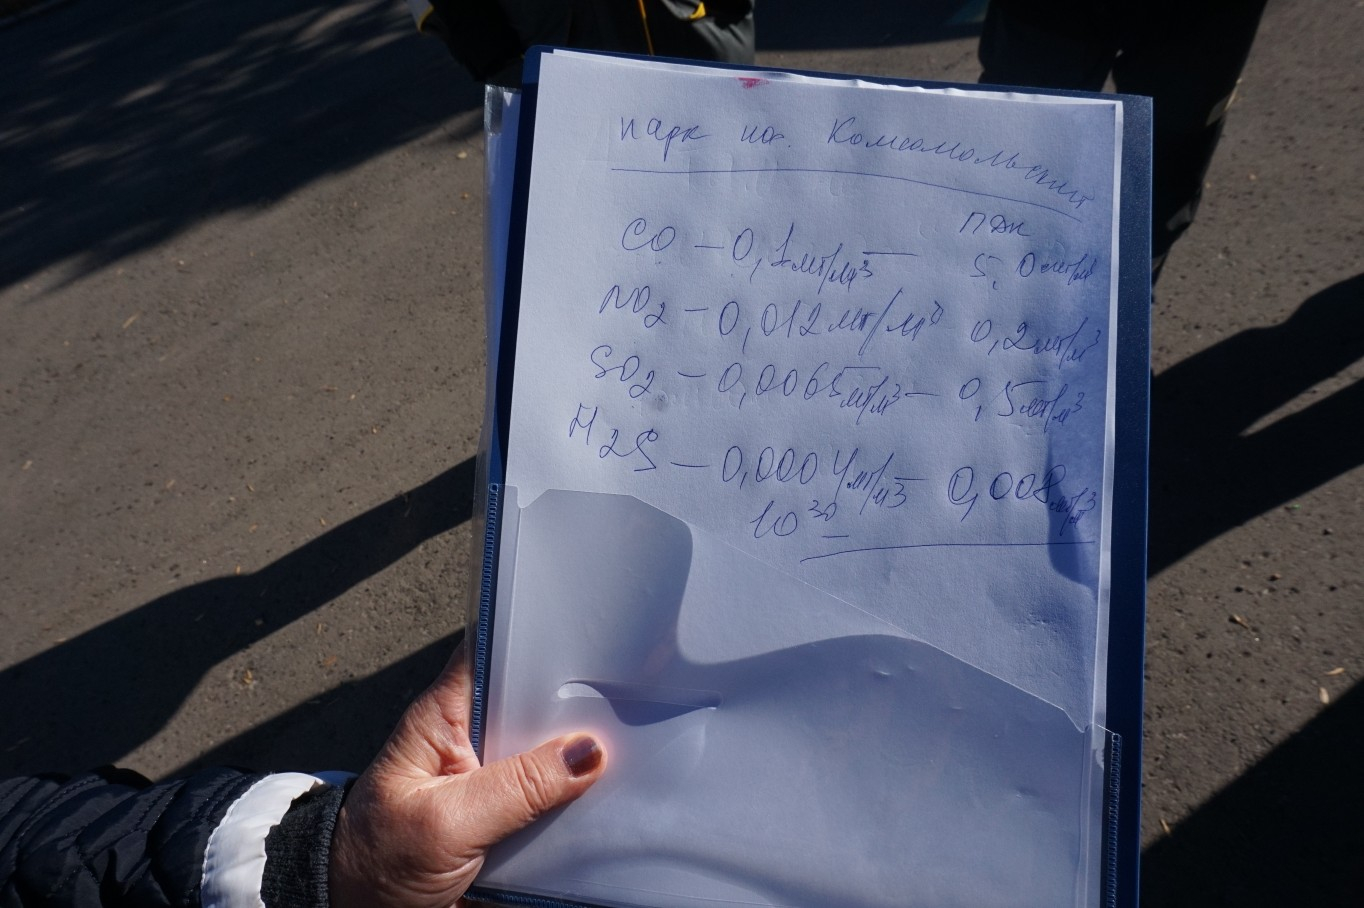 парк пос. Комсомольский
ПДК
CO – 0,1 мг/м³ – 5,0 мг/м³
NO2 – 0,012 мг/м³ 0,2 мг/м³
SO2 – 0,0065 мг/м³ – 0,5 мг/м³
H2S – 0,0004 мг/м³ – 0,008 мг/м³
10 30